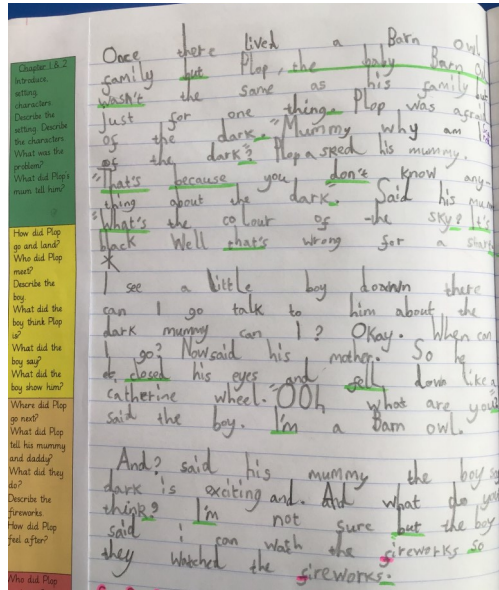 Chapter 1 & 2
Introduce
setting
characters
Describe the
setting. Describe
the characters
What was the
problem?
What did Plop's
mum tell him?
How did Plop
go and land?
Who did Plop
meet?
Describe the
boy.
What did the
boy think Plop
is?
What did the
boy say?
What did the
boy show him?
Where did Plop
go next?
What did Plop
tell his mummy
and daddy?
What did they
do?
Describe the
fireworks
How did Plop
feel after?
Who did Plop
Once there lived a Barn Owl
family but Plop, the baby Barn
wasn't the same as his family but
Just for one thing. Plop was
of the dark. "Mummy why am I
of the dark"? Plop asked his mummy.
"That's because you don't know any-
thing about the dark". Said his mum
"What's the colour of the sky? It's
black Well that's wrong for a
I see a little boy down there
can I go talk to him about the
dark mummy can I? Okay. When can
I go? Now said his mother. So he
closed his eyes and fell down like a
catherine wheel. "OOh what are you"
said the boy. I'm a Barn owl.
And? said his mummy the boy
dark is exciting and. And what do
think? I'm not sure but the boy
said I can wach the fireworks so
they watched the fireworks.